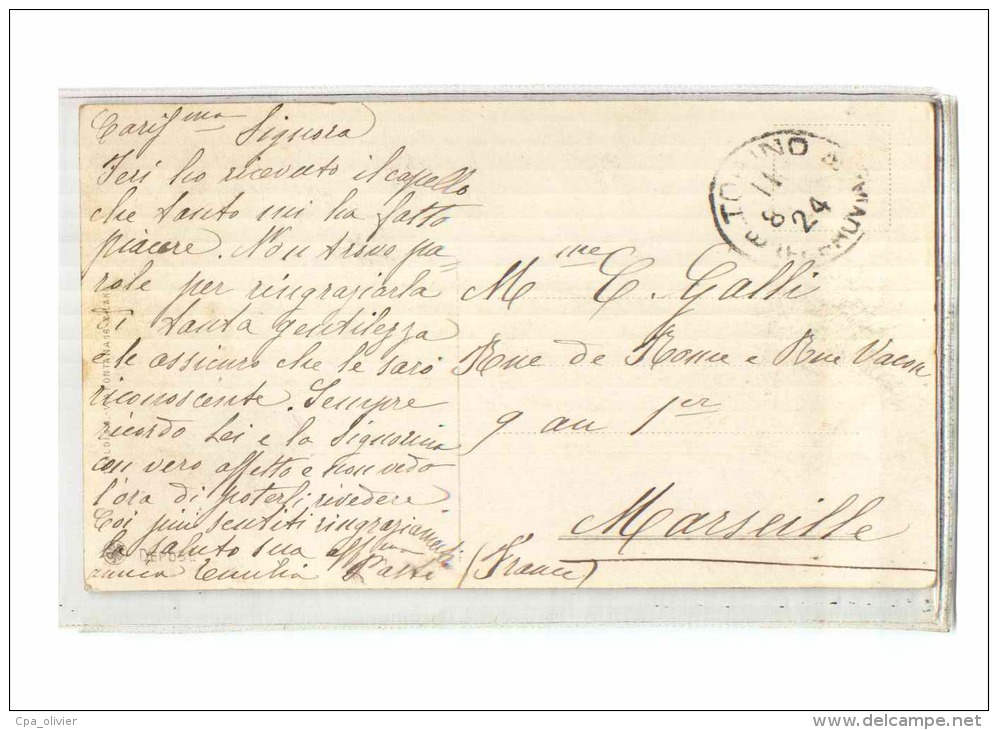 Carissma Signora
Ieri ho ricevuto il capello
che tanto mi ha fatto
piacere. Non trovo pa-
role per ringraziarla
di tanta gentilezza
e le assicuro che le sarò
riconoscente. Sempre
ricordo Lei e la Signorina
con vero affetto e non vedo
l'ora di poterli rivedere
Coi più sentiti ringraziamenti
la saluto sua aff.ma
amica Emilia
Mme C. Galli
Rue de Rome e Rue Vacon
9 au 1er
Marseille
(France)
TORINO
8 11
24
FONTANA 16
DEPOSE
Cpa_olivier
www.delcampe.net